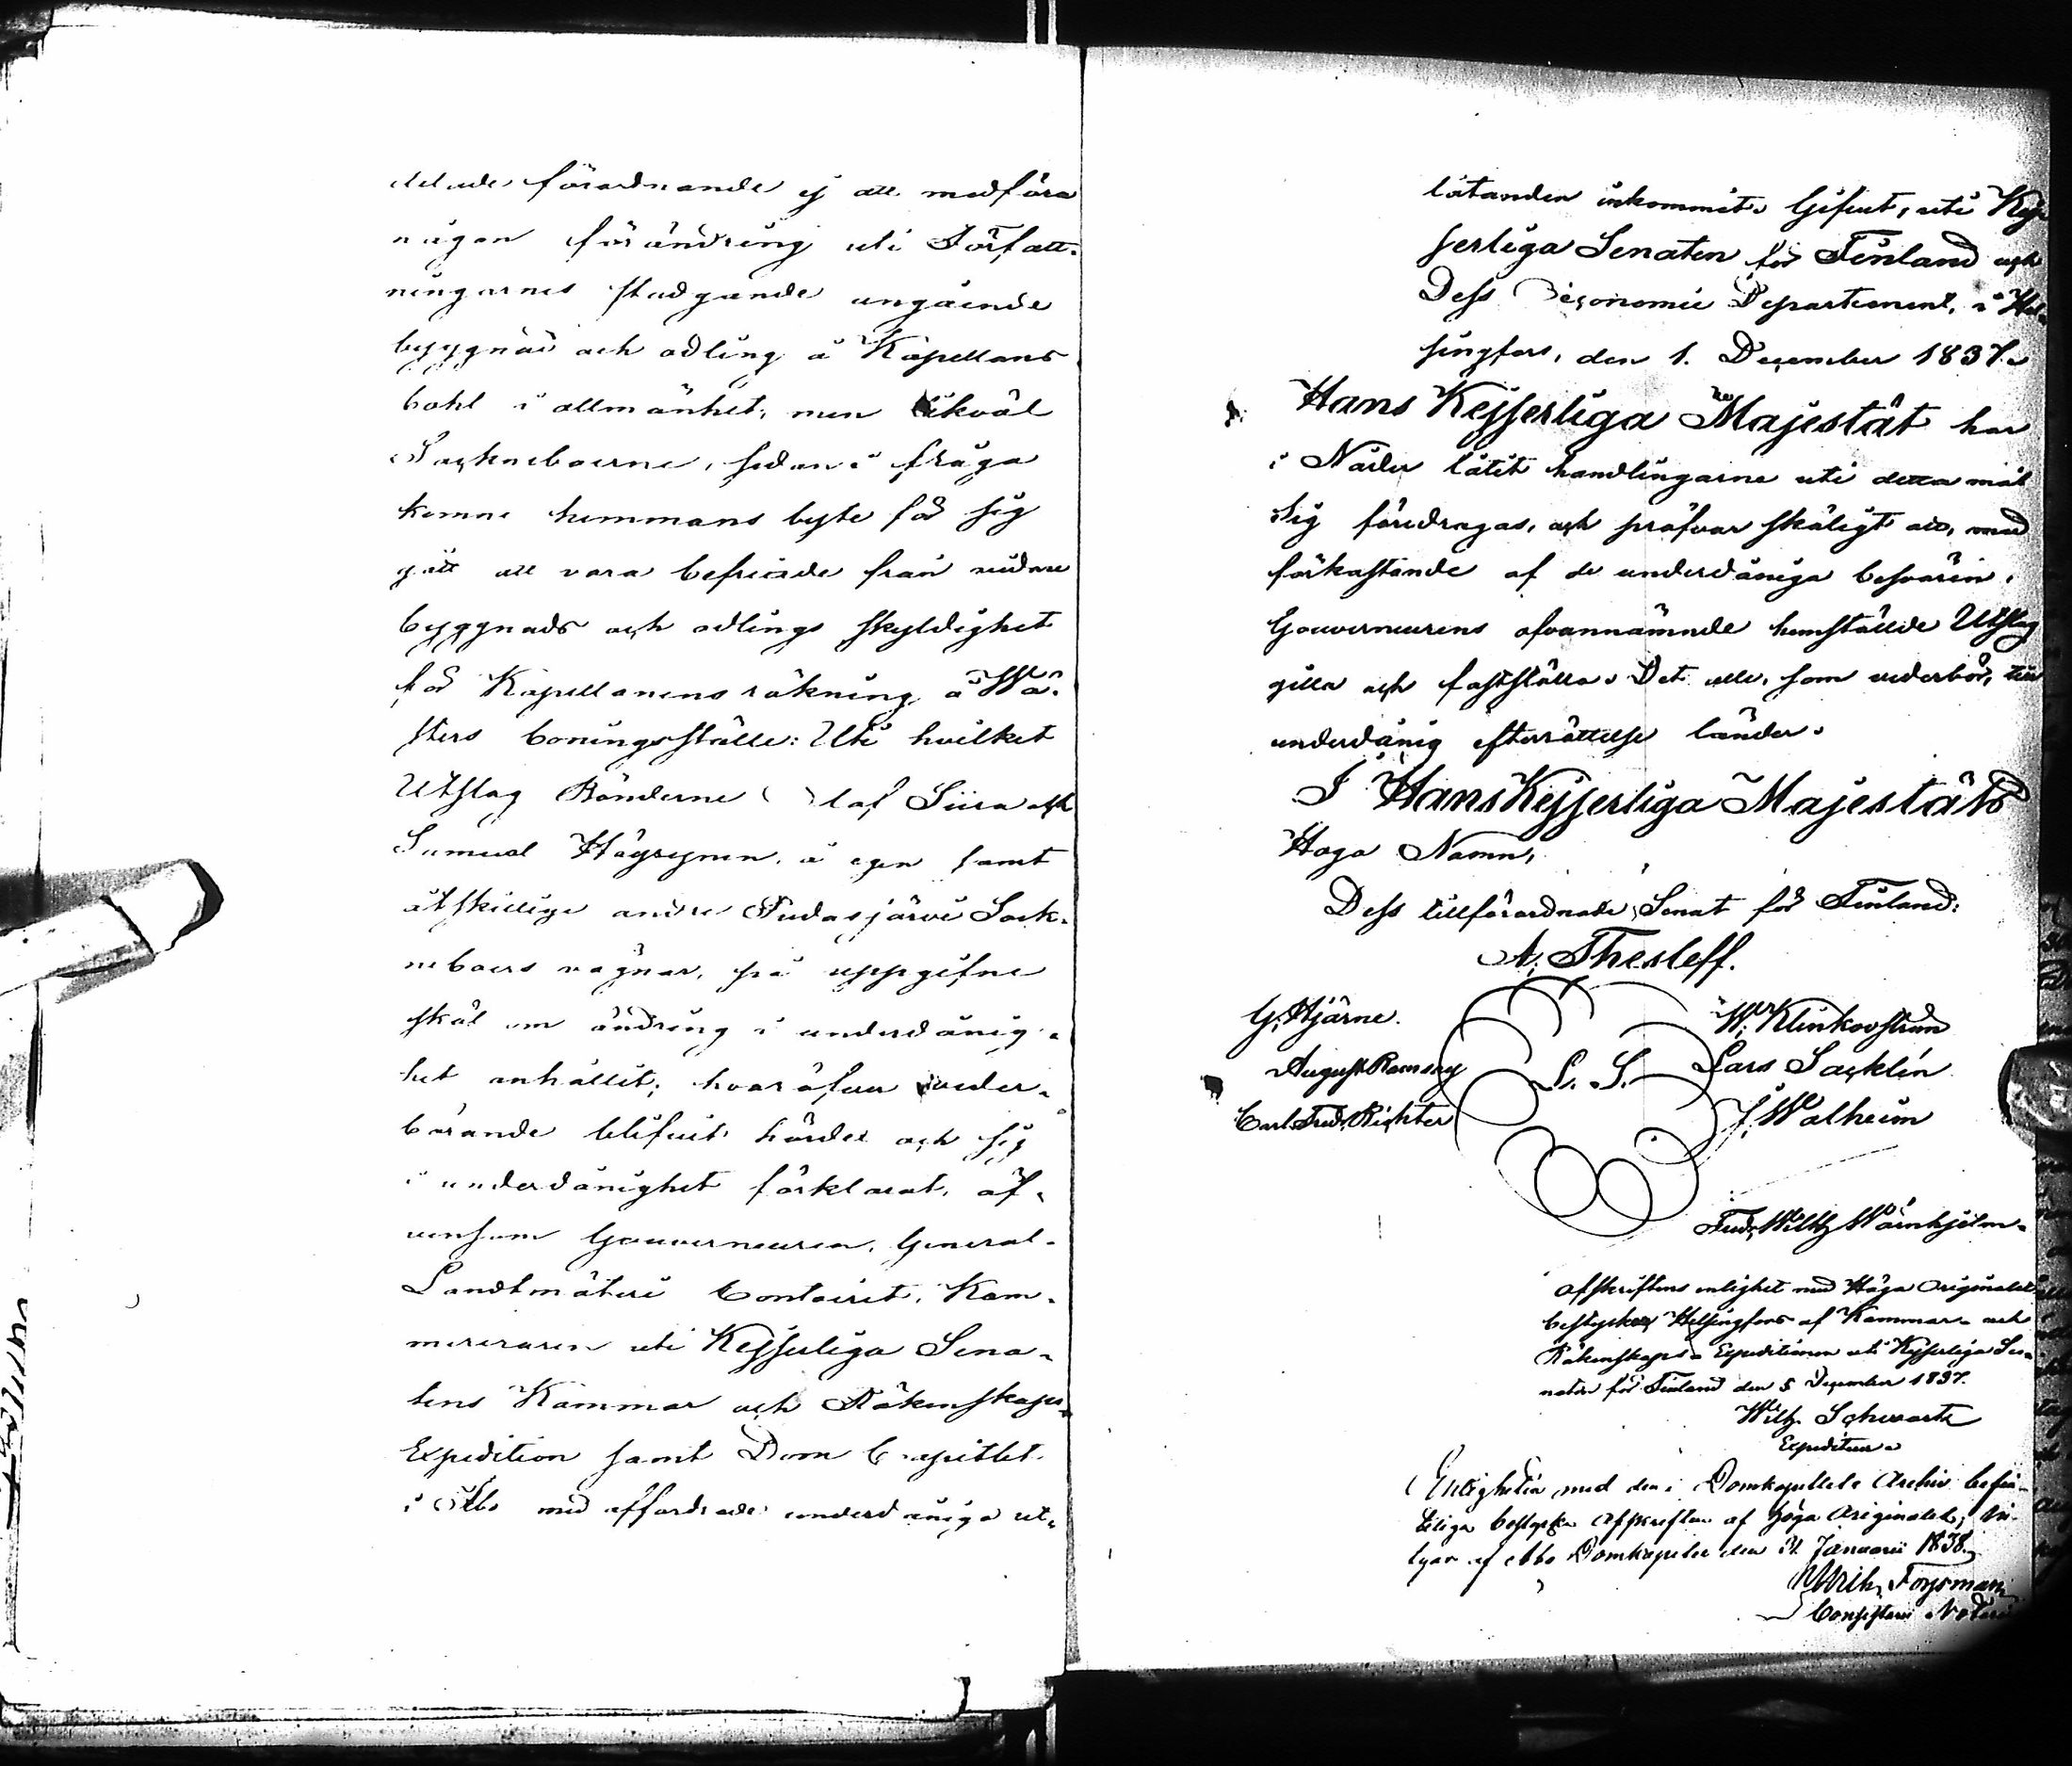 delade förordnande ej att medföra
någon förändring uti Författ-
ningarnes stadgande angående
byggnad och odling å Kapellans
bohl i allmänhet, men likväl
Sockneboerne, sedan i fråga
komne hemmans byte för sig
gått att vara befriade från vidare
byggnads och odlings skyldighet
för Kapellanens räkning å Wä-
sters boningsställe: Uti hvilket
Utslag Bönderne Olof Siira och
Samuel Häyrynen, å egen samt
åtskillige andre Pudasjärvi Sock-
neboers vägnar, på uppgifne
skäl om ändring i underdånig-
het anhållit; hvaröfver veder-
börande blifvit hörde och sig
i underdånighet förklarat, äf-
vensom Gouverneuren, General-
Landtmäteri Contoiret, Kam-
mereraren uti Kejserliga Sena-
tens Kammar och Räkenskaps
Expedition samt Dom Capitlet
i Åbo med affordrade underdåniga ut-
låtanden inkommit. Gifvet, uti Kej-
serliga Senaten för Finland och
Dess Oeconomie Departement, i Hel-
singfors, den 1. December 1837.
Hans Kejserliga Majestät har
i Nåder låtit handlingarne uti detta mål
Sig föredragas, och pröfvar skäligt att, med
förkastande af de underdåniga besvären,
Gouverneurens ofvannämnde hemställde Utslag
gilla och fastställa. Det alle, som vederbör, till
underdånig efterrättelse länder.
I Hans Kejserliga Majestäts
Höga Namn,
Dess tillförordnade Senat för Finland:
A. Thesleff.
G. Hjärne.
W. Klinkovström
August Ramsay
L. S.
Lars Sacklén
Carl Fred. Richter
J. Walheim
Fredr. Wilh. Wärnhjelm
Afskriftens enlighet med Höga Originalet
bestyrker Helsingfors af Kammar- och
Räkenskaps Expeditionen uti Kejserliga Se-
naten för Finland den 5 December 1837.
Wilh. Schwartz
Expediteur
Enligheten med den i Domkapitlets Archiv befin-
teliga bestyrkta afskriften af höga Originalet, in-
tygar af Åbo Domkapitel den 31 Januarii 1838.
Ulrik Forsman
Consistorii Notarie